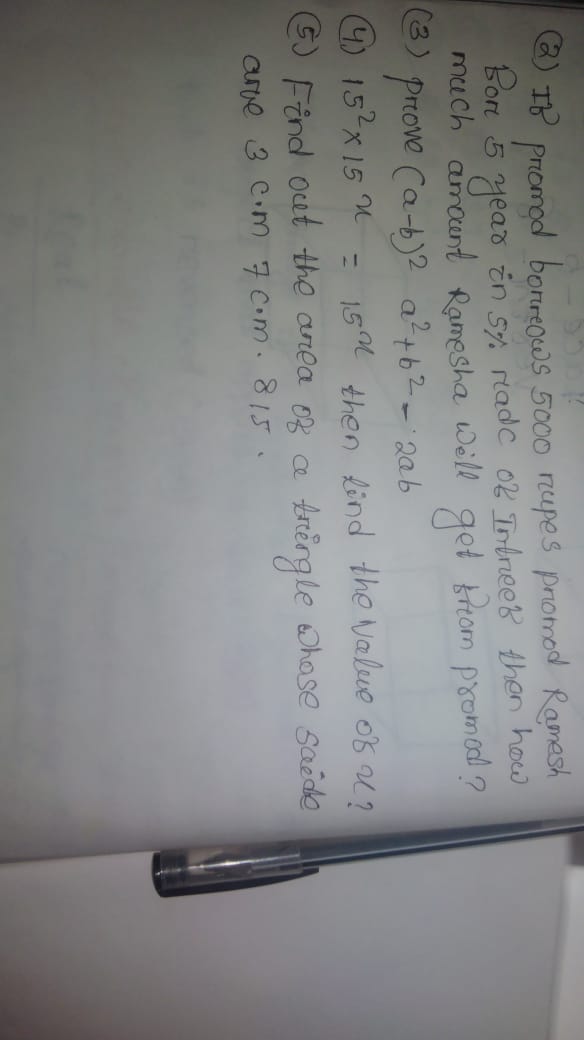 (2) If promod borreows 5000 rupes promod Ramesh
For 5 year in 5% radc of Intneet then how
much amount Ramesha will get from promod?
(3) prove (a-b)2 a2+b2-2ab
(4) 15²×15ˣ = 15ˣ then find the value of x?
(5) Find out the area of a triengle whose saide
arve 3 c.m 7 c.m. 815.